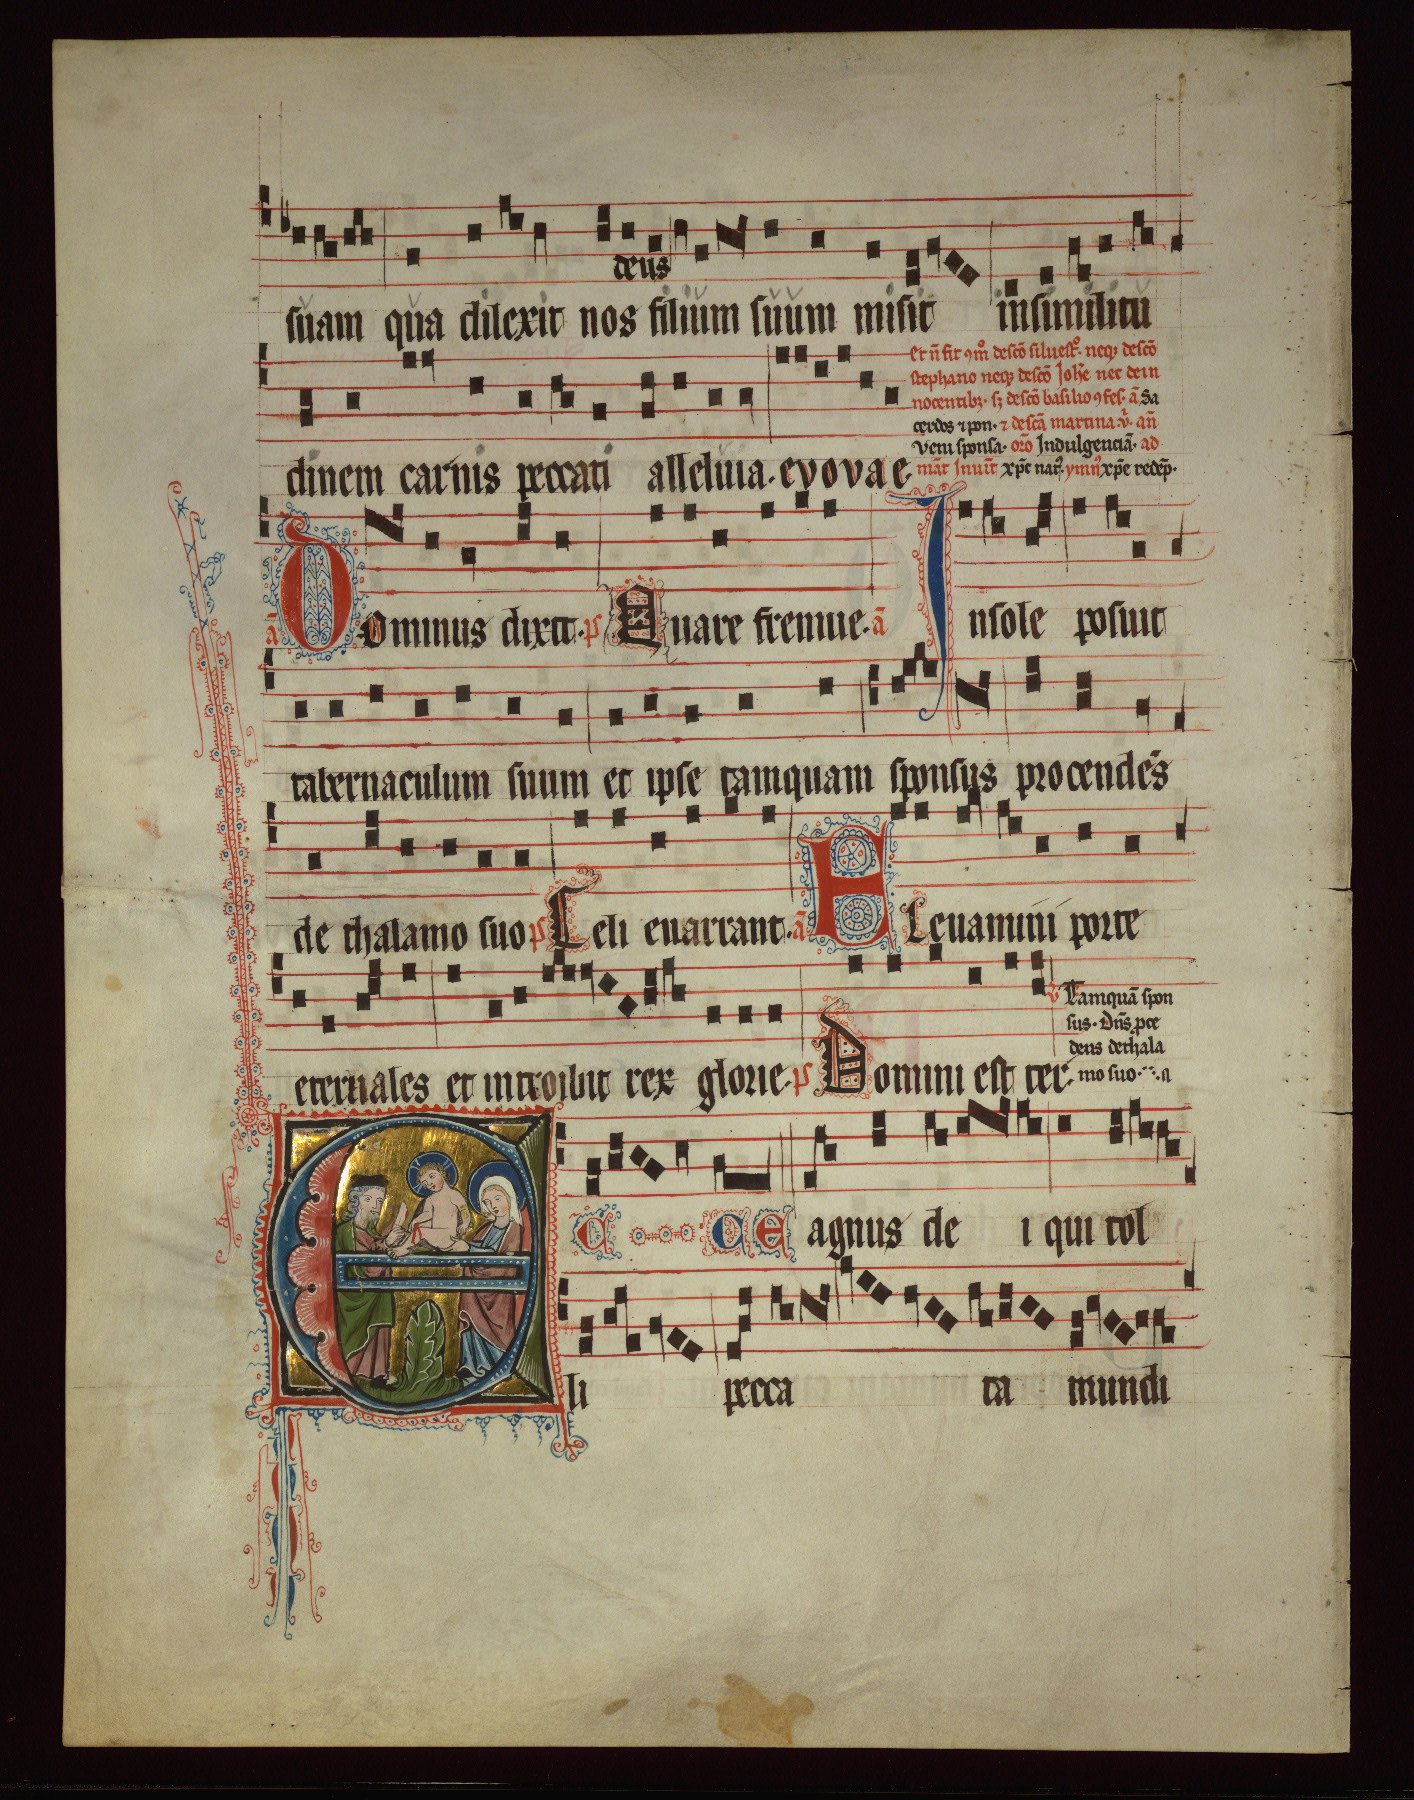 deus
suam qua dilexit nos filium suum misit in similitu
Et n̄ fit 9m̊ de sc̄o siluest̊. neq; de sc̄o
stephano neq; de sc̄o Joh̄e nec de in
nocentibz. sz de sc̄o basilio 9fes. a᷃ Sa
cerdos ⁊ pon. ⁊ de sc̄a martina. v̊. an̄
Veni sponsa. or̄o Indulgentiā. ad
dinem carnis peccati alleluia. evovae. mat̄ Inuit̄ xp̄c nat̄. ymn̄ xp̄e redēp.
ā Dominus dixit. p̄s Quare fremue. ā In sole posuit
tabernaculum suum et ipse tamquam sponsus procendēs
de thalamo suo p̄s Celi enarrant. ā Eleuamini porte
v̊ Tamquā spon
sus. Dn̄s p̄ce
dens de thala
eternales et introibit rex glorie. p̄s Domini est ter. mo suo.
ECCE agnus de i qui tol
li pecca ta mundi